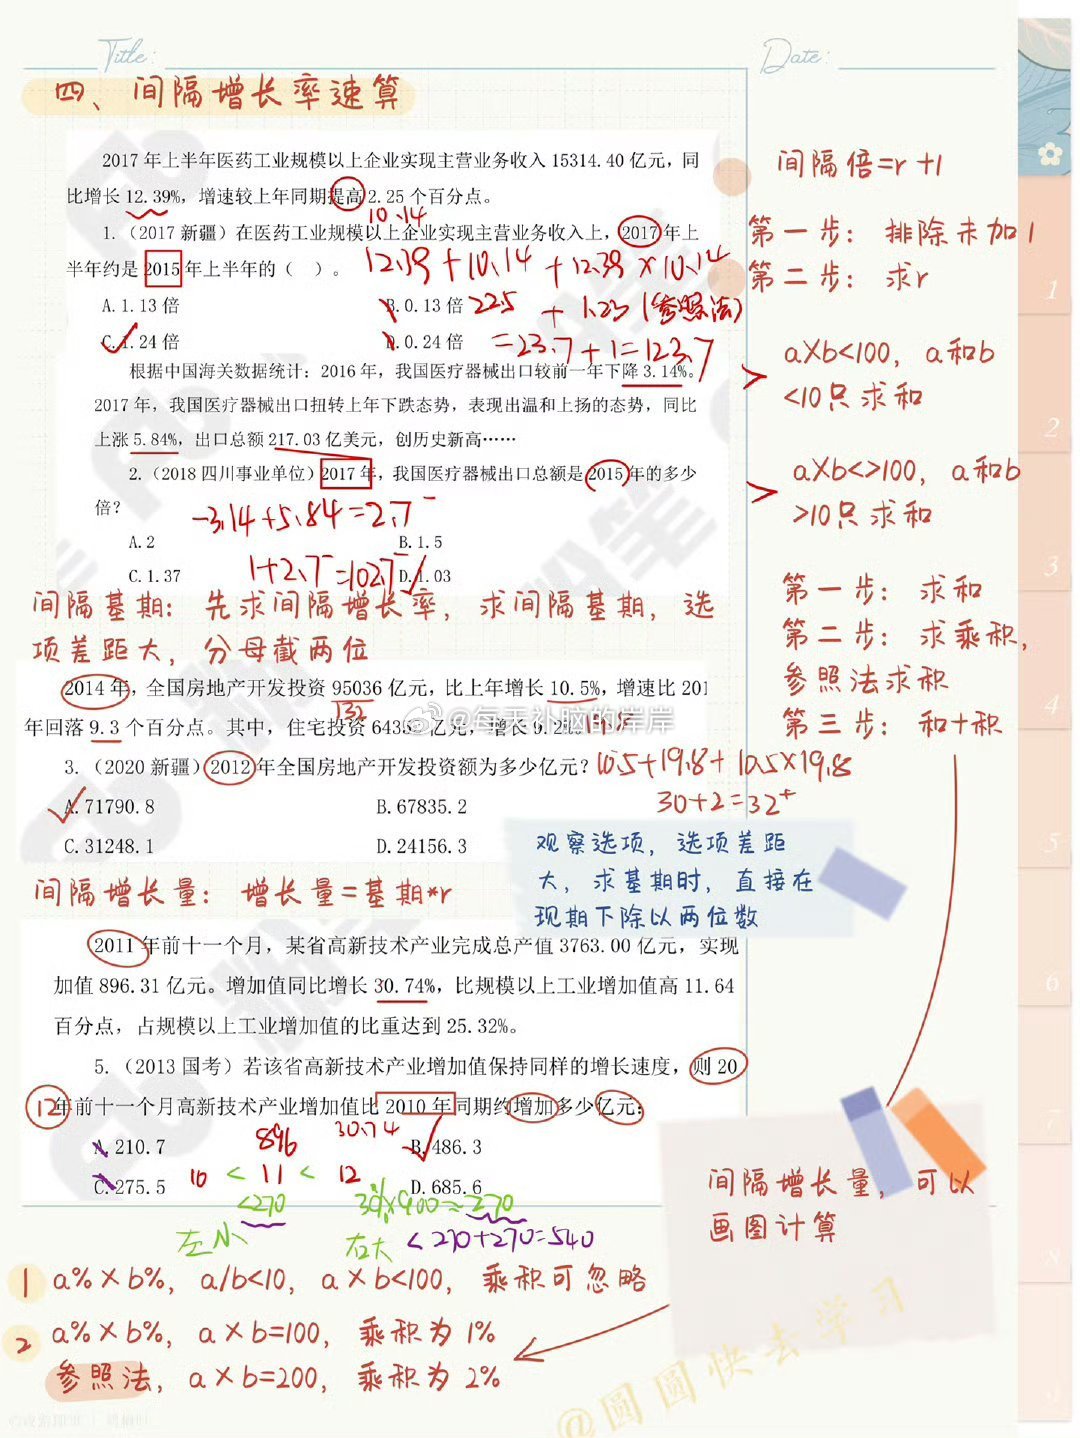 Title:
Date:
四、间隔增长率速算
2017 年上半年医药工业规模以上企业实现主营业务收入 15314.40 亿元，同
比增长 12.39%，增速较上年同期提高 2.25 个百分点。
10.14
1.（2017 新疆）在医药工业规模以上企业实现主营业务收入上，2017 年上
半年约是 2015 年上半年的（  ）。
12.39+10.14+12.39×10.14
A. 1.13 倍
B. 0.13 倍
22.5 + 1.23(参照法)
C. 1.24 倍
D. 0.24 倍
=23.7+1=123.7
根据中国海关数据统计：2016 年，我国医疗器械出口较前一年下降 3.14%。
2017 年，我国医疗器械出口扭转上年下跌态势，表现出温和上扬的态势，同比
上涨 5.84%，出口总额 217.03 亿美元，创历史新高……
2.（2018 四川事业单位）2017 年，我国医疗器械出口总额是 2015 年的多少
倍？
-3.14+5.84=2.7⁻
A. 2
B. 1.5
C. 1.37
1+2.7⁻=102.7⁻
D. 1.03
间隔倍=r+1
第一步：排除未加1
第二步：求r
a×b<100，a和b
<10只求和
a×b<>100，a和b
>10只求和
第一步：求和
第二步：求乘积，
参照法求积
第三步：和+积
间隔基期：先求间隔增长率，求间隔基期，选
项差距大，分母截两位
2014 年，全国房地产开发投资 95036 亿元，比上年增长 10.5%，增速比 201
132
年回落 9.3 个百分点。其中，住宅投资 6435 亿元，增长 9.2%
19.8
@每天补脑的岸岸
3.（2020 新疆）2012 年全国房地产开发投资额为多少亿元？
10.5+19.8+10.5×19.8
30+2=32⁺
A. 71790.8
B. 67835.2
C. 31248.1
D. 24156.3
观察选项，选项差距
大，求基期时，直接在
现期下除以两位数
间隔增长量：增长量=基期*r
2011 年前十一个月，某省高新技术产业完成总产值 3763.00 亿元，实现
加值 896.31 亿元。增加值同比增长 30.74%，比规模以上工业增加值高 11.64
百分点，占规模以上工业增加值的比重达到 25.32%。
5.（2013 国考）若该省高新技术产业增加值保持同样的增长速度，则 20
12 年前十一个月高新技术产业增加值比 2010 年同期约增加多少亿元：
896
30.74
A. 210.7
B. 486.3
10 < 11 < 12
C. 275.5
D. 685.6
<270
30%×900≈270
左小
右大
<270+270=540
间隔增长量，可以
画图计算
1 a%×b%，a/b<10，a×b<100，乘积可忽略
2 a%×b%，a×b=100，乘积为1%
参照法，a×b=200，乘积为2%
@圆圆快去学习
1
2
3
4
5
6
7
8
9